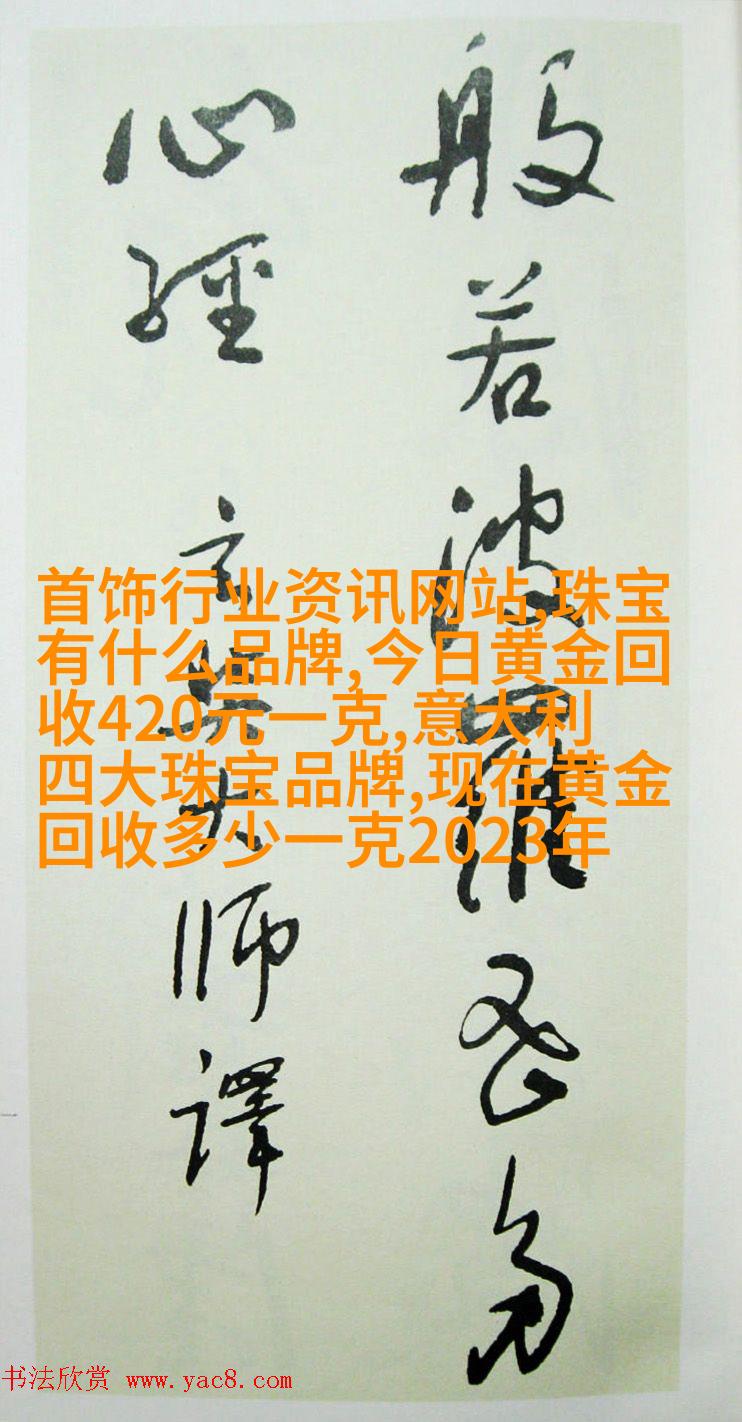 般若波羅蜜多
心經 玄奘大师譯
首饰行业资讯网站,珠宝
有什么品牌,今日黄金回
收420元一克,意大利
四大珠宝品牌,现在黄金
回收多少一克2023年
书法欣赏 www.yac8.com